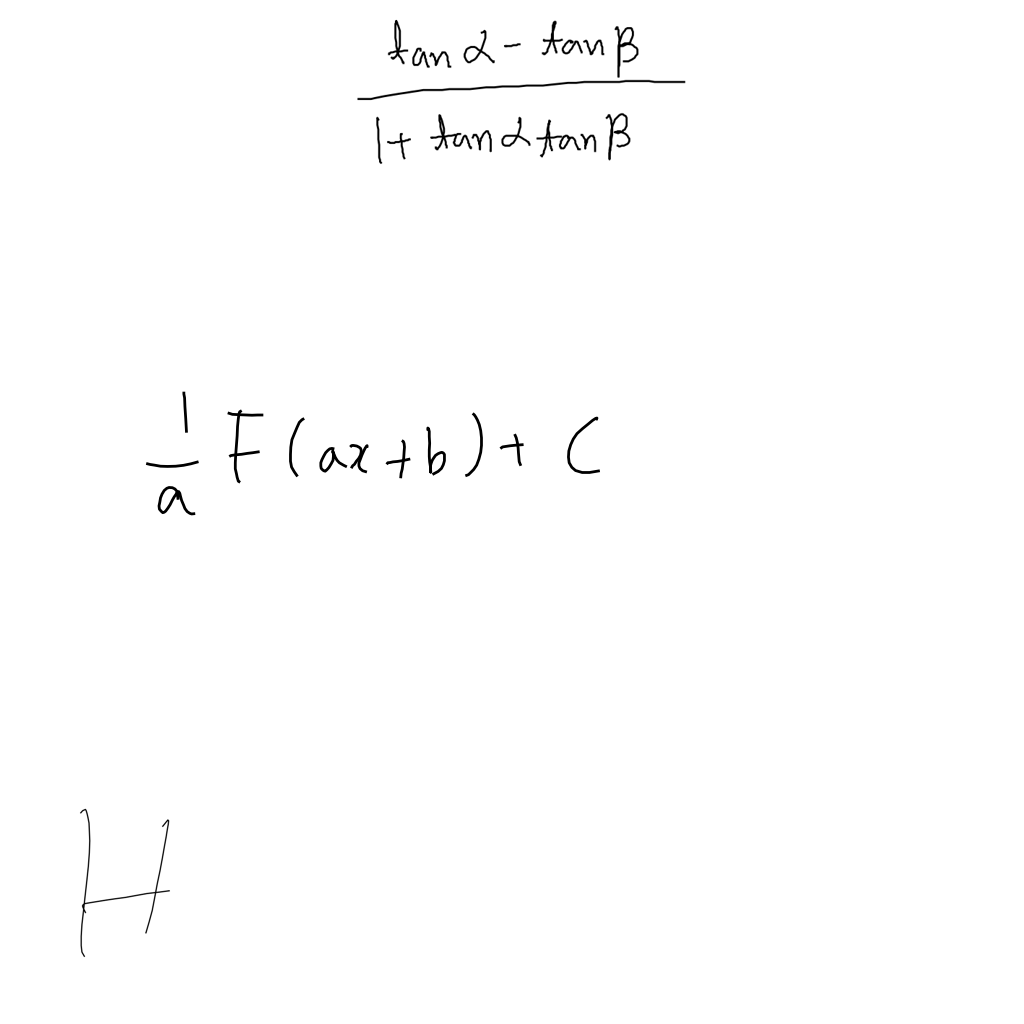 \frac{\tan\alpha - \tan\beta}{1 + \tan\alpha \tan\beta}
\frac{1}{a} F(ax+b) + C
H